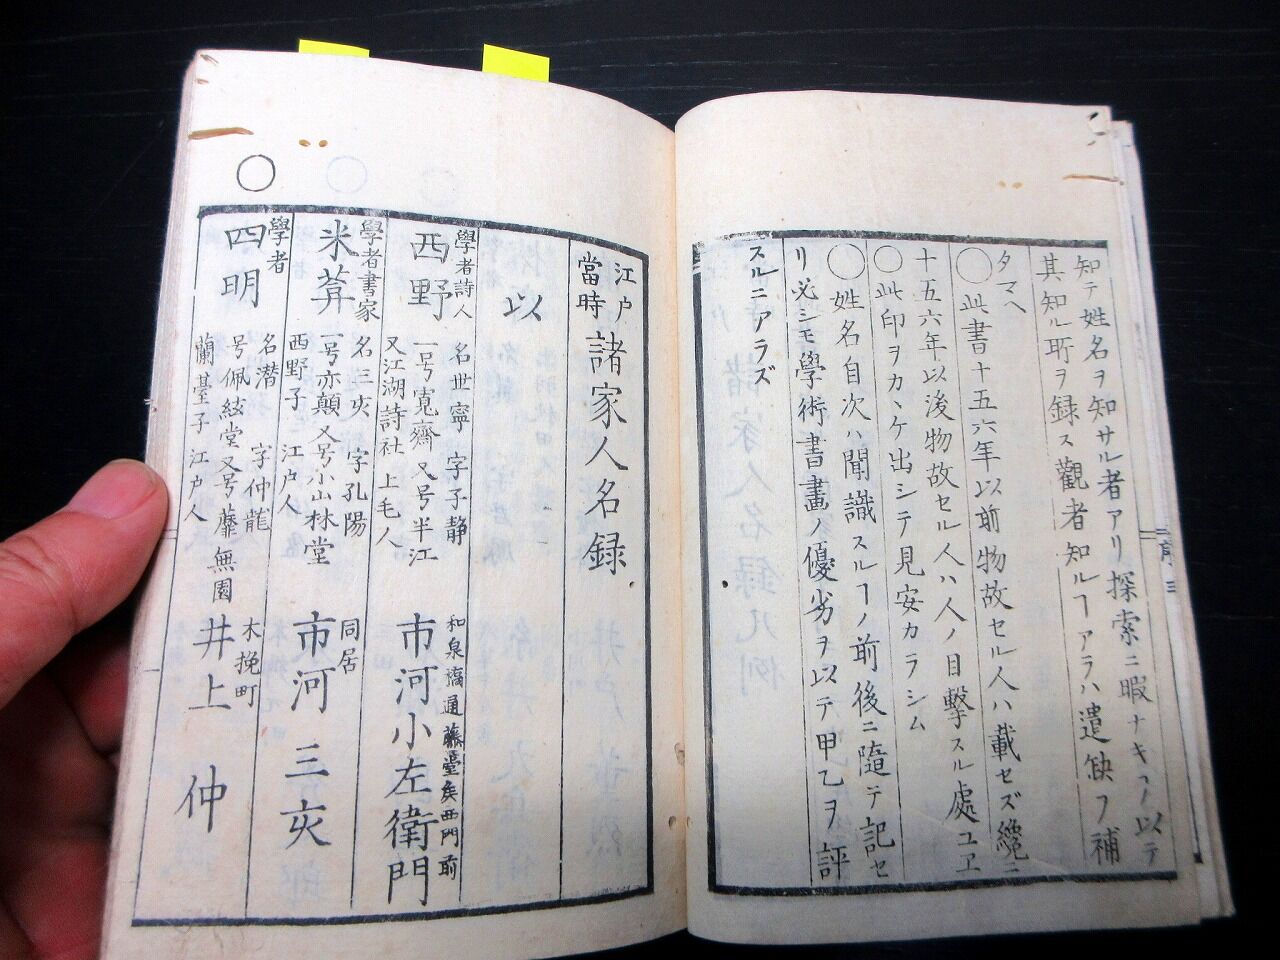 知テ姓名ヲ知サル者アリ探索ニ暇ナキヿノ以テ
其知ル所ヲ録ス觀者知ルヿアラハ遺缺ヲ補
タマヘ
○此書十五六年以前物故セル人ハ載セズ纔ニ
十五六年以後物故セル人ハ人ノ目撃スル處ユヱ
○此印ヲカヽケ出シテ見安カラシム
○姓名自次ハ聞識スルヿノ前後ニ隨テ記セ
リ必シモ學術書畫ノ優劣ヲ以テ甲乙ヲ評
スルニアラズ
序 三
江戸
當時
諸家人名録
以
學者詩人
西野
名世寧 字子静
一号寛齋 又号半江
又江湖詩社 上毛人
和泉橋通藤堂矦西門前
市河小左衛門
學者書家
米葊
名三亥 字孔陽
一号亦顛 又号小山林堂
西野子 江戸人
同居
市河三亥
○
學者
四明
名潜 字仲龍
号佩絃堂 又号蘼無園
蘭臺子 江戸人
木挽町
井上仲